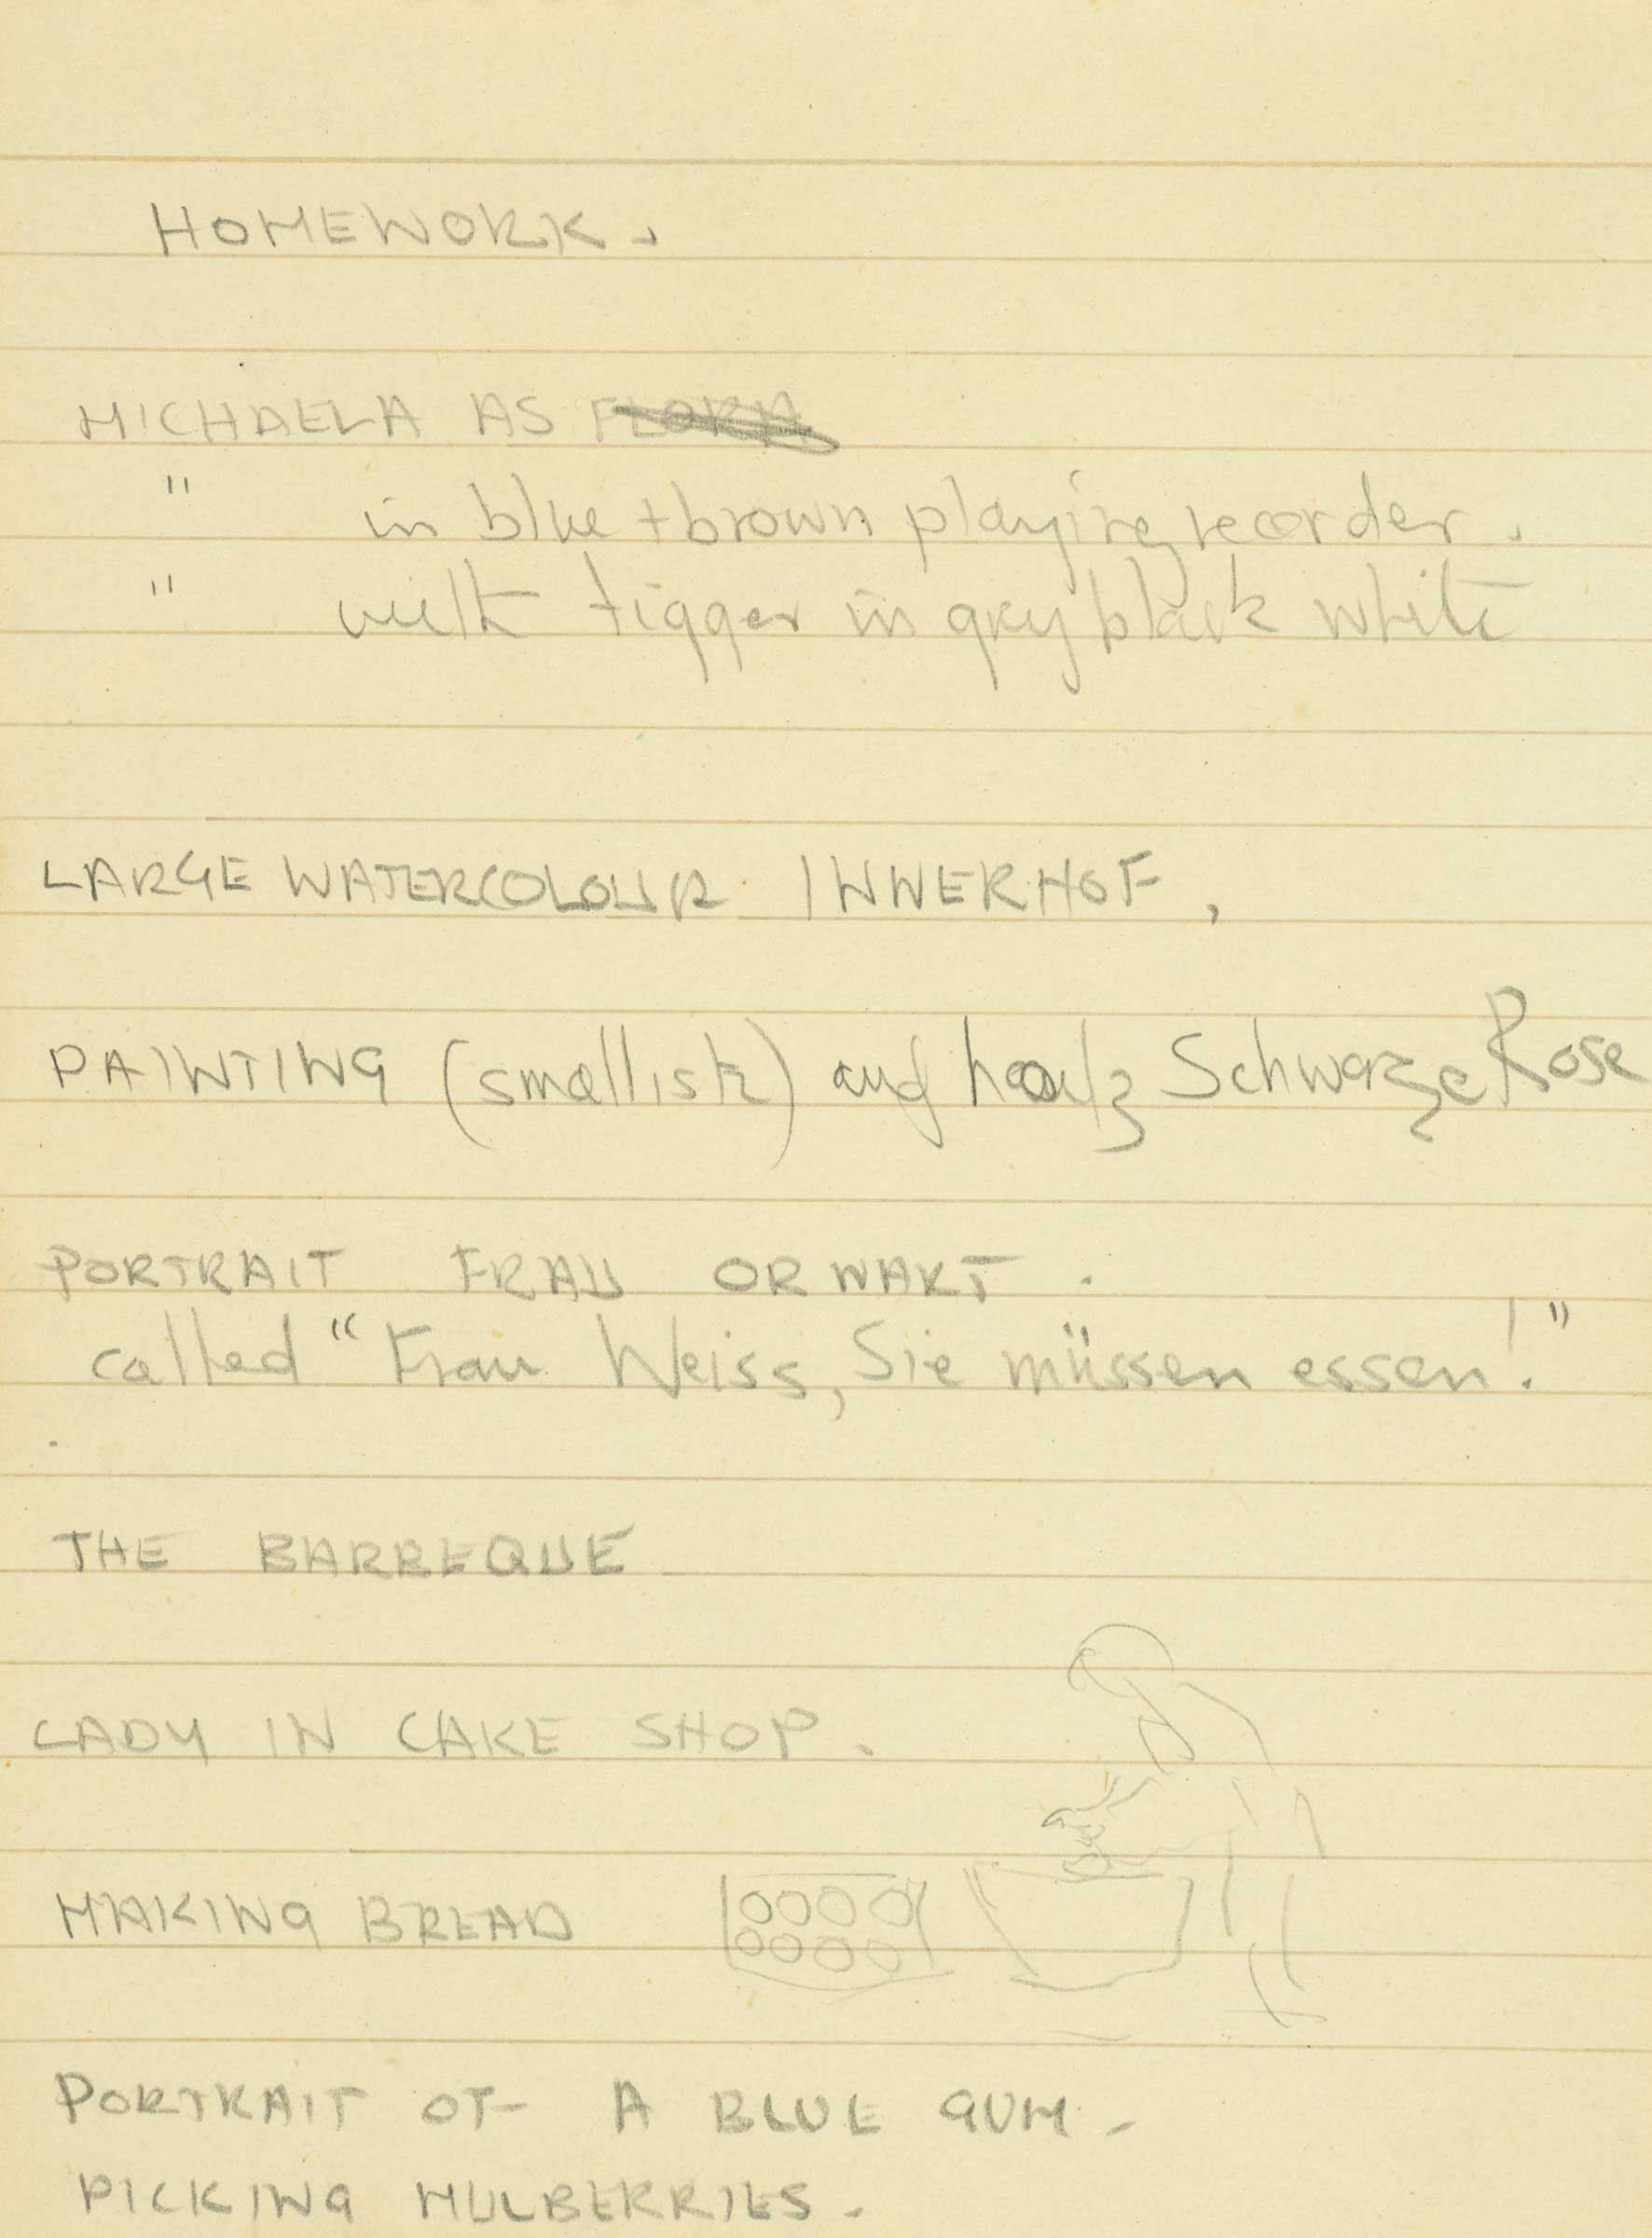 HOMEWORK.
MICHAELA AS FLORA
" in blue + brown playing recorder.
" with tigger in grey black white
LARGE WATERCOLOUR INNERHOF,
PAINTING (smallish) auf holz Schwarze Rose
PORTRAIT FRAU ORWAKT.
called "Frau Weiss, Sie müssen essen!"
THE BARBEQUE
LADY IN CAKE SHOP.
MAKING BREAD
PORTRAIT OF A BLUE GUM.
PICKING MULBERRIES.